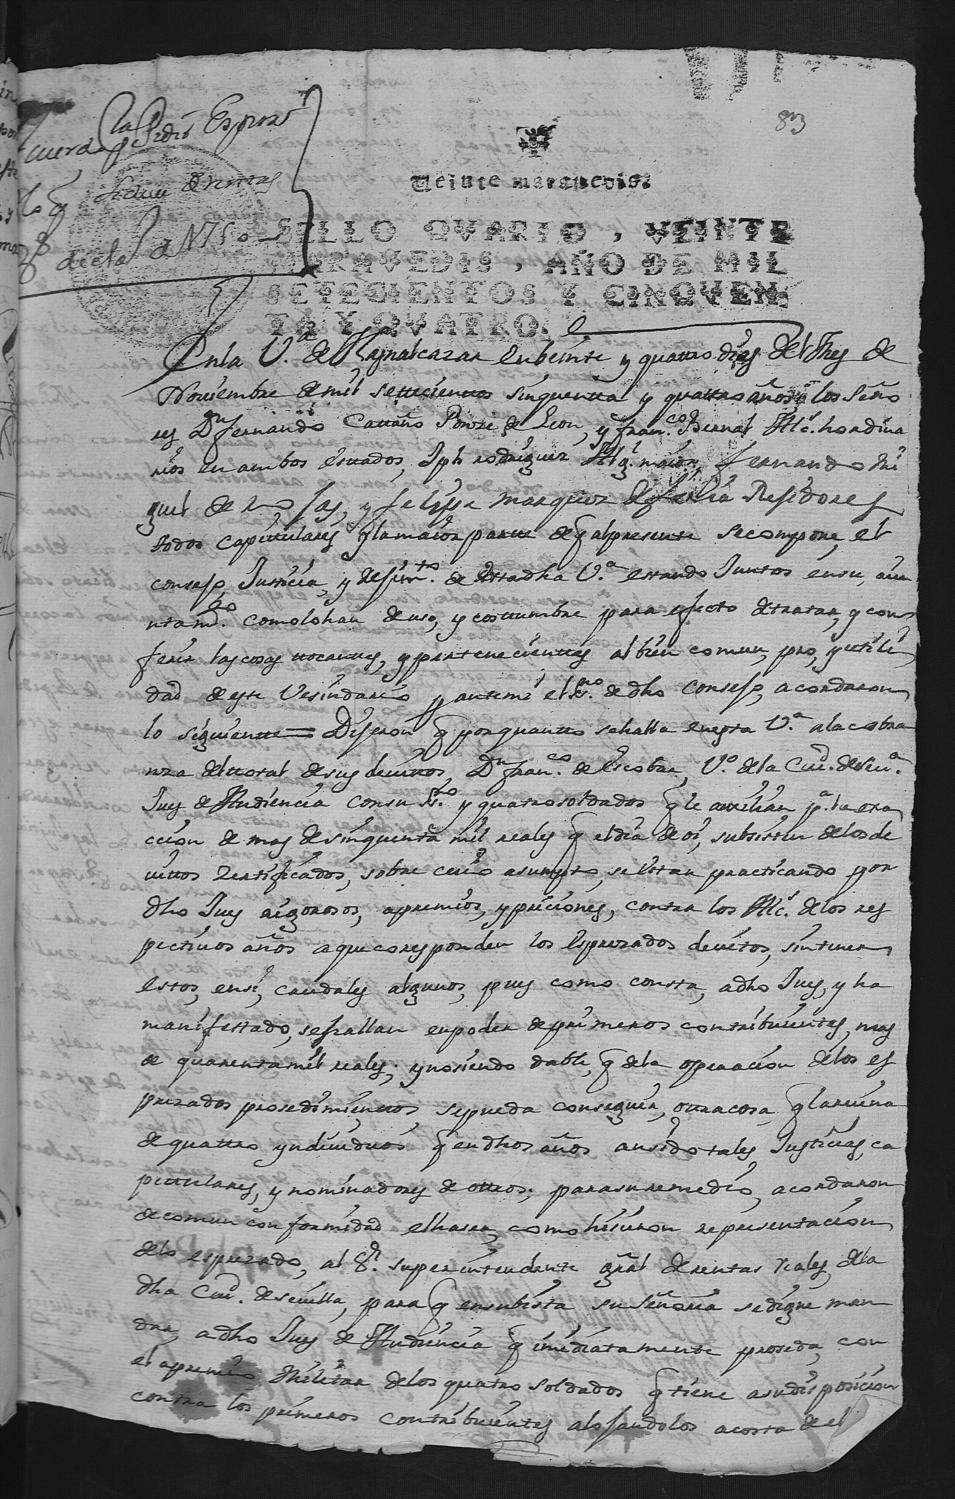 83
Veinte maravedis.
SELLO QVARTO, VEINTE
MARAVEDIS, AÑO DE MIL
SETECIENTOS Y CINQVEN
TA Y QVATRO.
En la V.ª de Rejnalcazar en beinte y quattro dias del Mes de
Noviembre de mil settecientos sinquenta y quattro años los Seño
res Dn fernando Cattaño Ponze de Leon, y fran.co Bernal Alc.s hordina
rios en ambos estados, Jph rodriguez Alg.l maior, fernando Mi
guel de rosas, y felippe marquez Rexidores
todos capitulares q la maior parte de q al presente se compone, el
consejo Justicia, y Rejim.to de esta dha V.ª estando Juntos en su aiun
tam.to como lo han de uso, y costtumbre para efecto de tratar, y con
ferir las cosas tocantes, y pertenecientes al bien comun, pro, y utili
dad de este Vesindario y ante mi el Ss.no de dho Consejo, acordaron
lo siguiente = Dijeron q por quantto se halla en esta V.ª a la cobra
nza del total de sus devitos, Dn fran.co de Escobar, V.o de la Ciu.d de Sev.ª
Juez de Audiencia con su Ss.no y quatro soldados q le auxilian p.ª la exa
ccion de mas de sinquenta mil reales q el dia de oi, subsisten de los de
vittos Zertificados, sobre cuio asumpto, se estan practicando por
dho Juez rigorosos, apremios, y priciones, contra los Alc.s de los res
pectivos años a que coresponden los Espresados devitos, sin tener
estos, en si, caudales algunos, pues como consta, a dho Juez, y ha
manifestado, se hallan en poder de primeros contribuientes, mas
de quarenta mil reales; y no siendo dable, q de la operacion de los es
presados prosedimientos, se pueda conseguir, otra cosa q la ruina
de quattro yndividuos q en dhos años an sido tales Justicias, ca
pittulares, y nominadores de ottros; para su remedio, acordaron
de comun conformidad el haser, como hisieron representacion
de lo espresado, al S.r superintendente gral de rentas reales, de la
dha Ciu.d de sevilla, para q en su bista su Señoria se digne man
dar, a dho Juez de Audiencia q imediatamente proseda, con
el apremio Militar de los quatro soldados q tiene a su disposicion
contra los primeros contribuientes alojandolos a costa de el